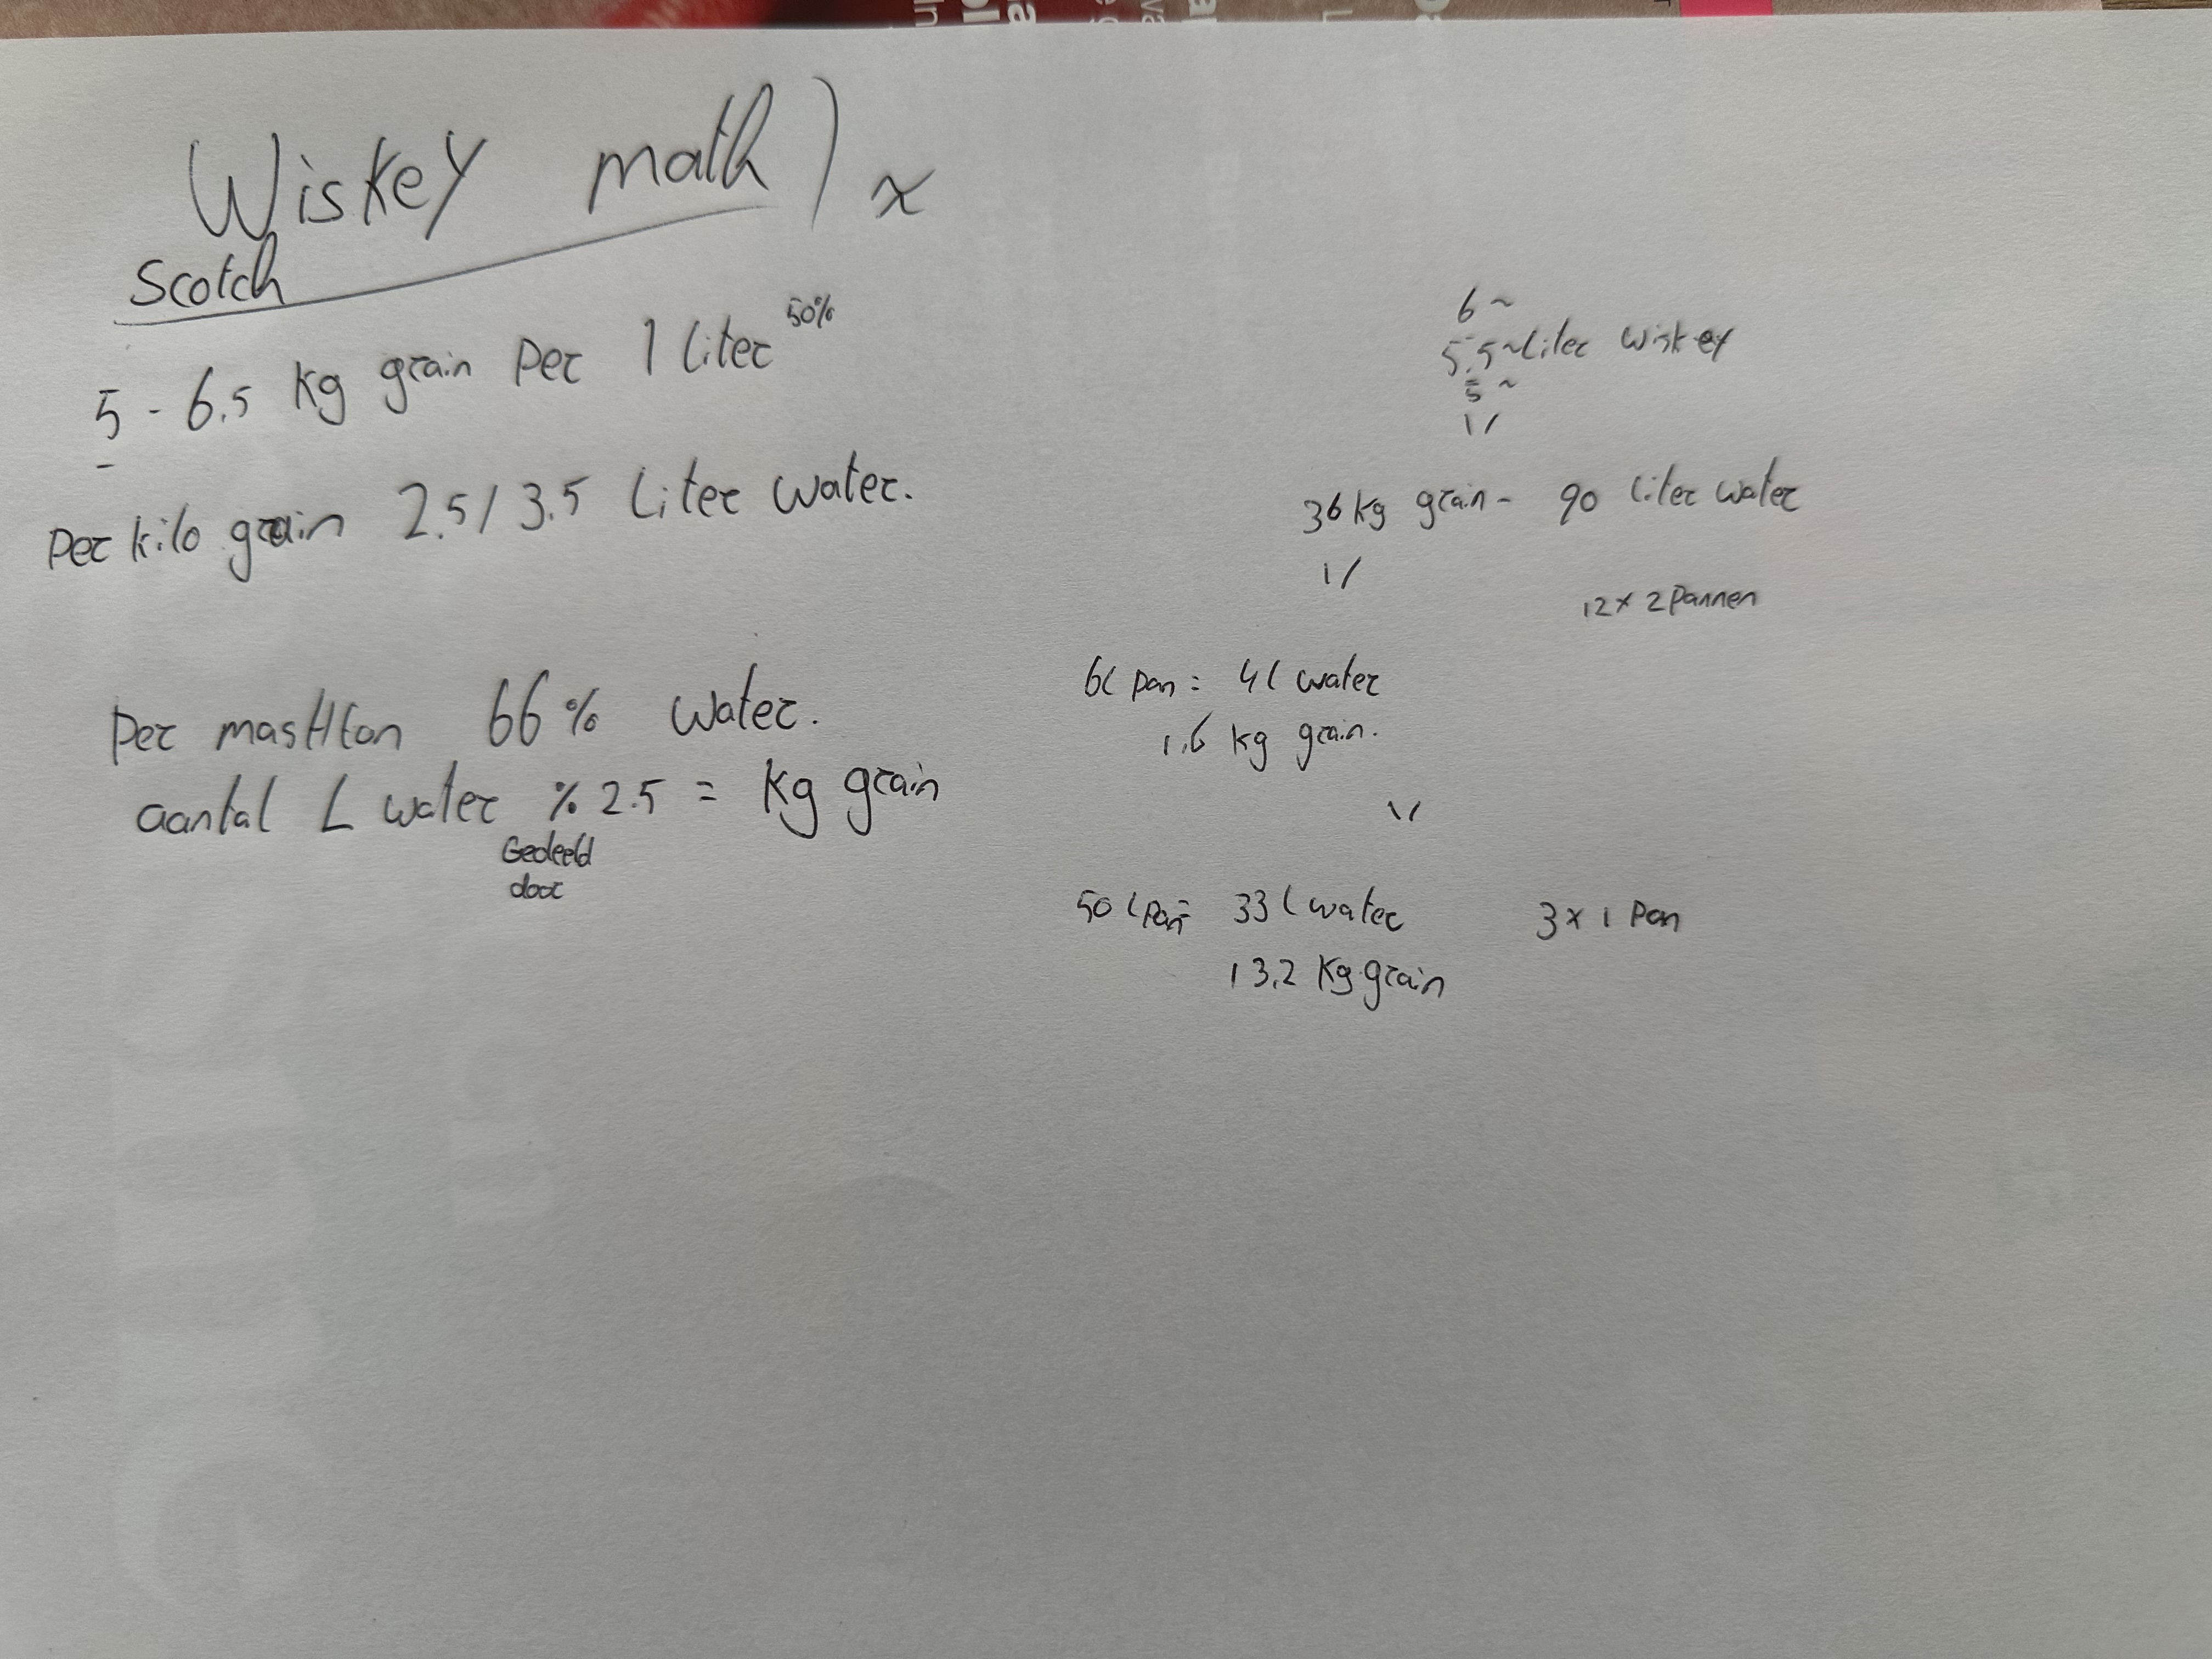 Wiskey math) x
Scotch
5 - 6.5 kg grain per 1 liter 50%
per kilo grain 2.5 / 3.5 Liter water.
per mashton 66% water.
aantal L water % 2.5 = kg grain
Gedeeld
door
6 ~
5.5 ~ Liter wiskey
5 ~
36 kg grain - 90 liter water
12 x 2 Pannen
6L pan = 4L water
1.6 kg grain.
50L pan = 33L water
13,2 kg grain
3 x 1 Pan